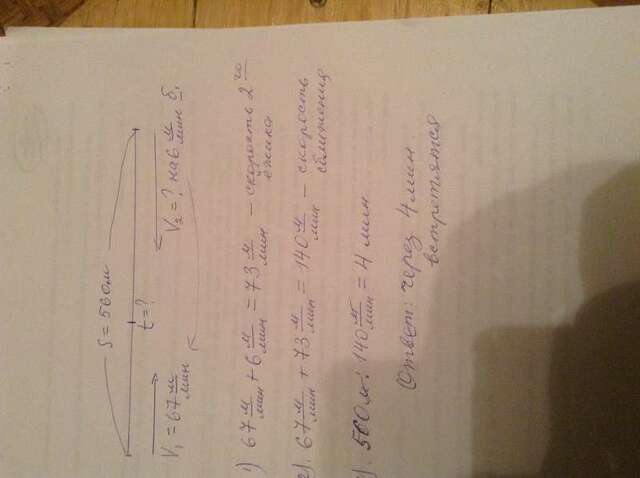 S = 560 м
t = ?
V₁ = 67 м/мин V₂ = ? на 6 м/мин б.
1) 67 м/мин + 6 м/мин = 73 м/мин – скорость 2го
ёжика
2). 67 м/мин + 73 м/мин = 140 м/мин – скорость
сближения
). 560 м : 140 м/мин = 4 мин
Ответ: через 4 мин.
встретятся